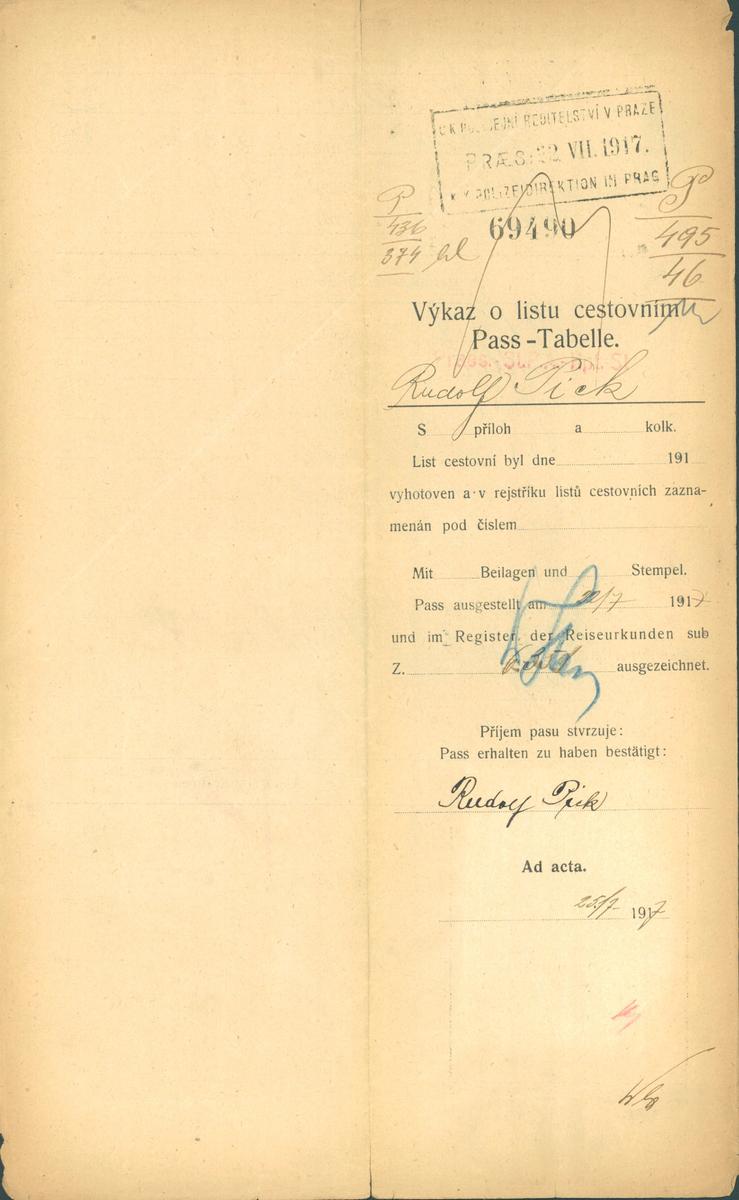 C. K. POLICEJNÍ ŘEDITELSTVÍ V PRAZE
PRÆS. 22 VII. 1917.
K. K. POLIZEIDIREKTION IN PRAG
69490
P
436
374
P
495
46
Výkaz o listu cestovním
Pass-Tabelle.
Rudolf Pick
S příloh a kolk.
List cestovní byl dne 191
vyhotoven a v rejstříku listů cestovních zazna-
menán pod číslem
Mit Beilagen und Stempel.
Pass ausgestellt am 22/7 1917
und im Register der Reiseurkunden sub
Z. ausgezeichnet.
Příjem pasu stvrzuje:
Pass erhalten zu haben bestätigt:
Rudolf Pick
Ad acta.
25/7 1917